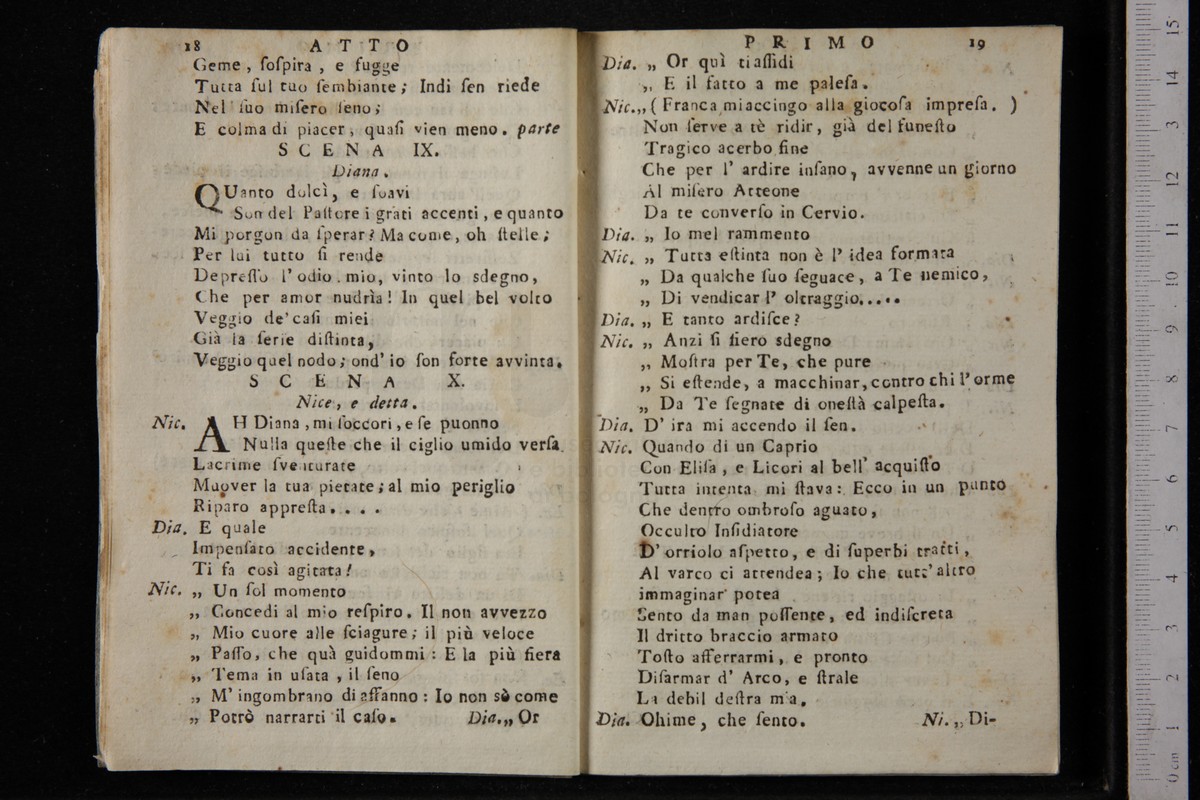 18 ATTO
Geme, ſoſpira, e fugge
Tutta ſul tuo ſembiante; Indi ſen riede
Nel ſuo miſero ſeno;
E colma di piacer, quaſi vien meno. parte
SCENA IX.
Diana.
QUanto dolcì, e ſoavi
Son del Paſtore i grati accenti, e quanto
Mi porgon da ſperar? Ma come, oh ſtelle;
Per lui tutto ſi rende
Depreſſo l'odio mio, vinto lo sdegno,
Che per amor nudrìa! In quel bel volto
Veggio de' caſi miei
Già la ſerie diſtinta,
Veggio quel nodo; ond' io ſon forte avvinta.
SCENA X.
Nice, e detta.
Nic. AH Diana, mi ſoccori, e ſe puonno
Nulla queſte che il ciglio umido verſa
Lacrime ſventurate
Muover la tua pietate; al mio periglio
Riparo appreſta....
Dia. E quale
Impenſato accidente,
Ti fa così agitata!
Nic. „ Un ſol momento
„ Concedi al mio reſpiro. Il non avvezzo
„ Mio cuore alle ſciagure; il più veloce
„ Paſſo, che quà guidommi: E la più fiera
„ Tema in uſata, il ſeno
„ M' ingombrano di affanno: Io non sò come
„ Potrò narrarti il caſo. Dia.„ Or
PRIMO 19
Dia. „ Or quì ti aſſidi
„ E il fatto a me paleſa.
Nic.„ (Franca mi accingo alla giocoſa impreſa. )
Non ſerve a tè ridir, già del funeſto
Tragico acerbo fine
Che per l' ardire inſano, avvenne un giorno
Al miſero Atteone
Da te converſo in Cervio.
Dia. „ Io mel rammento
Nic. „ Tutta eſtinta non è l' idea formata
„ Da qualche ſuo ſeguace, a Te nemico,
„ Di vendicar l' oltraggio.....
Dia. „ E tanto ardiſce?
Nic. „ Anzi ſi fiero sdegno
„ Moſtra per Te, che pure
„ Si eſtende, a macchinar, contro chi l' orme
„ Da Te ſegnate di oneſtà calpeſta.
Dia. D' ira mi accendo il ſen.
Nic. Quando di un Caprio
Con Eliſa, e Licori al bell' acquiſto
Tutta intenta mi ſtava: Ecco in un punto
Che dentro ombroſo aguato,
Occulto Inſidiatore
D' orriolo aſpetto, e di ſuperbi tratti,
Al varco ci attendea; Io che tutt' altro
immaginar potea
Sento da man poſſente, ed indiſcreta
Il dritto braccio armato
Toſto afferrarmi, e pronto
Diſarmar d' Arco, e ſtrale
La debil deſtra mia.
Dia. Ohime, che ſento. Ni. „ Di-